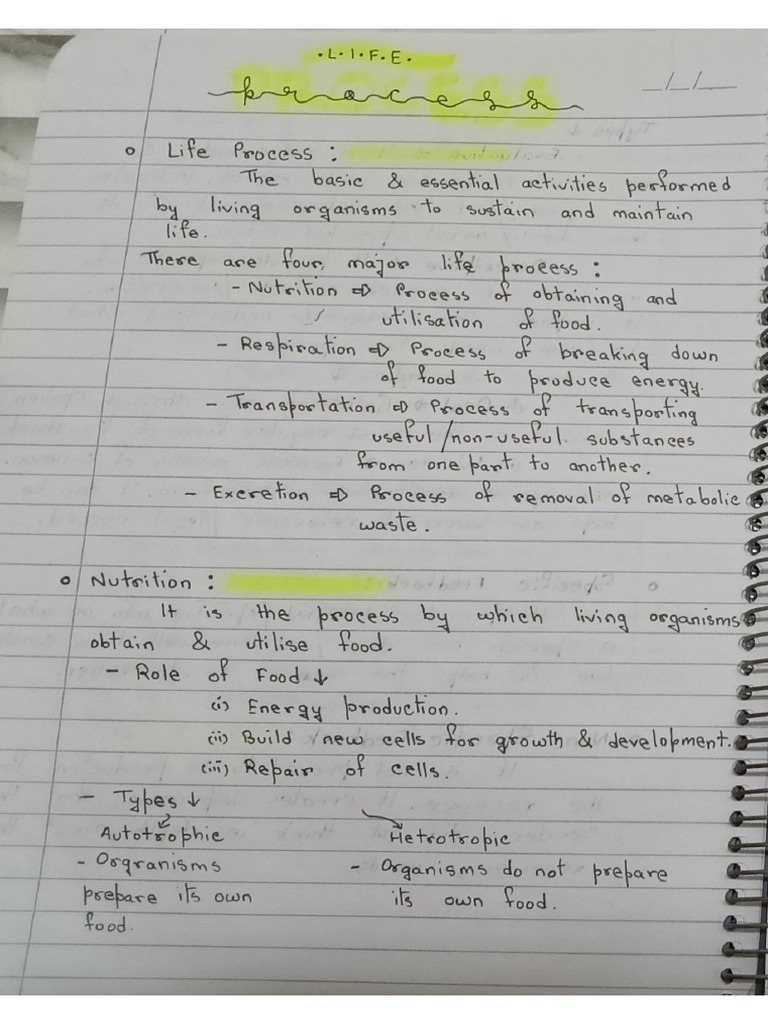 ·L·I·F·E·
process
_/_/__
o Life Process :
The basic & essential activities performed
by living organisms to sustain and maintain
life.
There are four major life process :
- Nutrition ⇨ Process of obtaining and
utilisation of food.
- Respiration ⇨ Process of breaking down
of food to produce energy.
- Transportation ⇨ Process of transporting
useful/non-useful substances
from one part to another.
- Excretion ⇨ Process of removal of metabolic
waste.
o Nutrition :
It is the process by which living organisms
obtain & utilise food.
- Role of Food ↓
(i) Energy production.
(ii) Build new cells for growth & development.
(iii) Repair of cells.
- Types ↓
Autotrophic Hetrotropic
- Orgranisms - Organisms do not prepare
prepare its own its own food.
food.